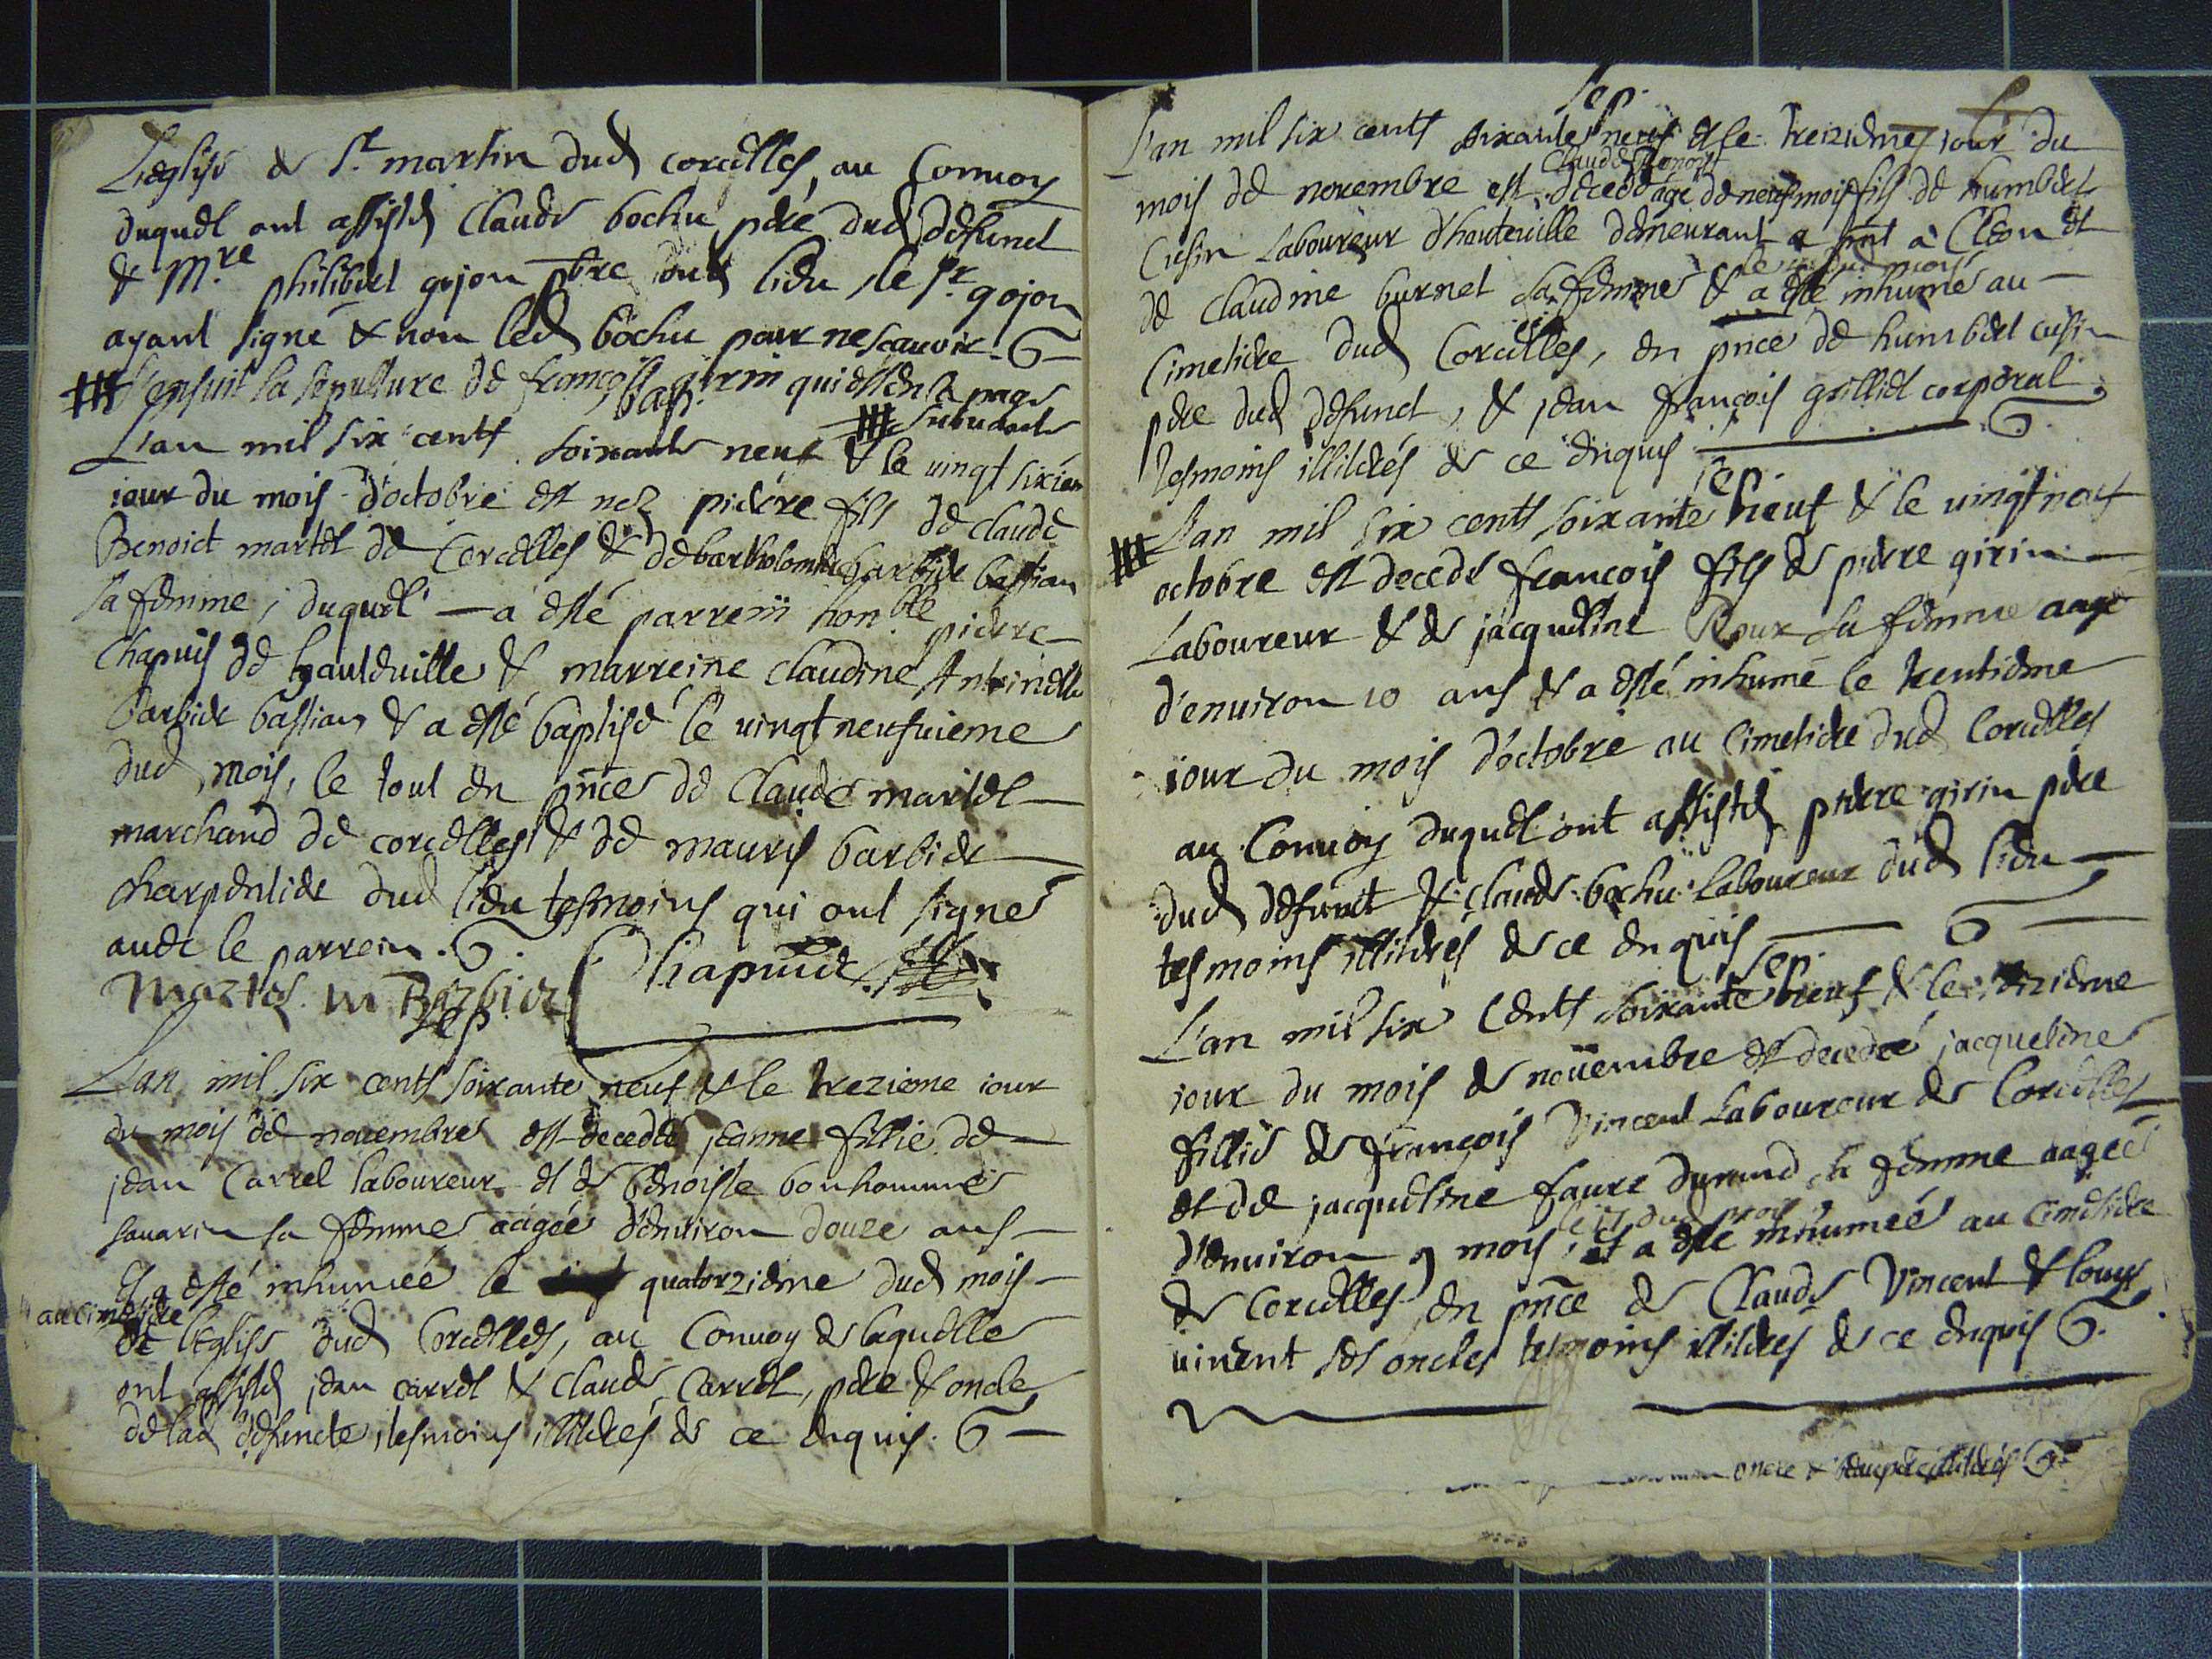 L'eglise de St. martin dud corcelles, au Convoy
duquel ont assistés Claude bochu pere dud defunct
& Mre. philibert gojon pbre dud lieu, le sr. gojon
ayant signé & non led bochu pour ne scavoir. G
S'ensuit la sepulture de françois girin qui est en la page suivante
bap.
L'an mil six cents soixante neuf & le vingt sixiem
iour du mois d'octobre est nez pierre fils de claude
Benoict martel de Corcelles & de bartholomie barbier bastian
sa femme, duquel a esté parrein honble. pierre
Chapuis de haulteuille & marreine claudine Antoinette
barbier bastian & a esté baptisé le vingt neufuieme
dud mois, le tout en pnce de Claude martel
marchand de corcelles & de mauris barbier
charpentier dud lieu tesmoins qui ont signé
auec le parrein. G.
Martel m Barbier Chapuis
sep
L'an mil six cents soixante neuf & le trezieme iour
du mois de nouembre est decedée jeanne fillie de
jean Carrel laboureur et de benoiste bonhomme
sauarin sa femme aagée d'enuiron douze ans
Et a esté inhumée le quatorzieme dud mois
au cimetiere
de l'eglise dud Corcelles, au Conuoy de laquelle
ont assistés jean carrel & claude Carrel, pere & oncle
de lad defuncte, tesmoins illiterés de ce enquis. G
sep.
L'an mil six cents soixante neuf & le treizieme iour du
Claude honoré
mois de novembre est decedé agé de neuf mois fils de humbert
Cusin laboureur d'hauteuille demeurant a pnt à Cleon et
le dud mois
de Claudine burnet sa femme & a esté inhumé au
Cimetiere dud Corcelles, en pnce de humbert cusin
pere dud defunct, & jean françois grilliet corporal
Tesmoins illiterés de ce enquis G.
sep.
L'an mil six cents soixante neuf & le vingt neuf
octobre est decedé françois fils de pierre girin
Laboureur & de jacqueline Roux sa femme aagé
d'enuiron 10 ans & a esté inhumé le trentieme
iour du mois d'octobre au cimetiere dud Corcelles
au Conuoy duquel ont assistés pierre girin pere
dud defunct & claude bochu laboureur dud lieu
tesmoins illiterés de ce enquis G
sep.
L'an mil six cents soixante neuf & le
iour du mois de nouembre est decedée jacqueline
fillie de françois Vincent laboureur de Corcelles
et de jacqueline faure durand sa femme aagée
le 17 dud mois
d'enuiron 9 mois, et a esté inhumée au cimetiere
de Corcelles en pnce de Claude Vincent & louys
vincent ses oncles tesmoins illiterés de ce enquis G.
oncle & beaupere illiterés G